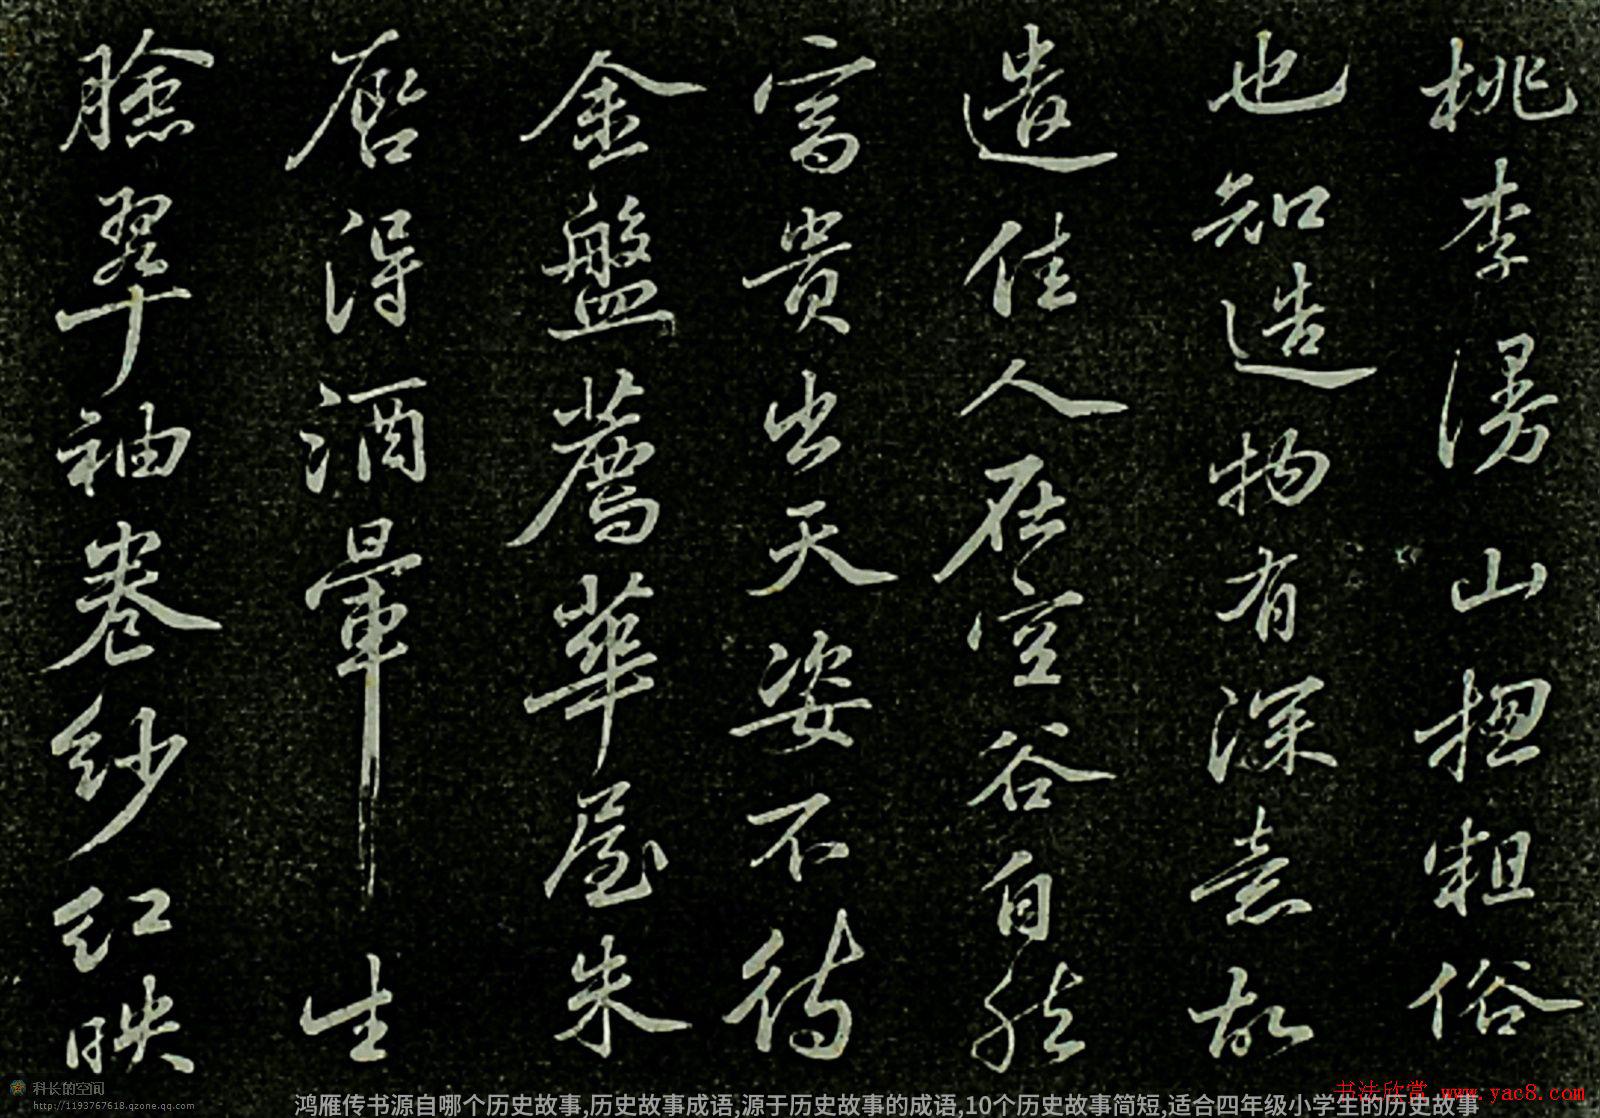 桃李漫山揔粗俗
也知造物有深意故
遣佳人在空谷自然
富貴出天姿不待
金盤薦華屋朱
唇得酒暈生
臉翠袖卷紗紅映
科长的空间
http://1193767618.qzone.qq.com
鸿雁传书源自哪个历史故事,历史故事成语,源于历史故事的成语,10个历史故事简短,适合四年级小学生的历史故事
书法欣赏 www.yac8.com